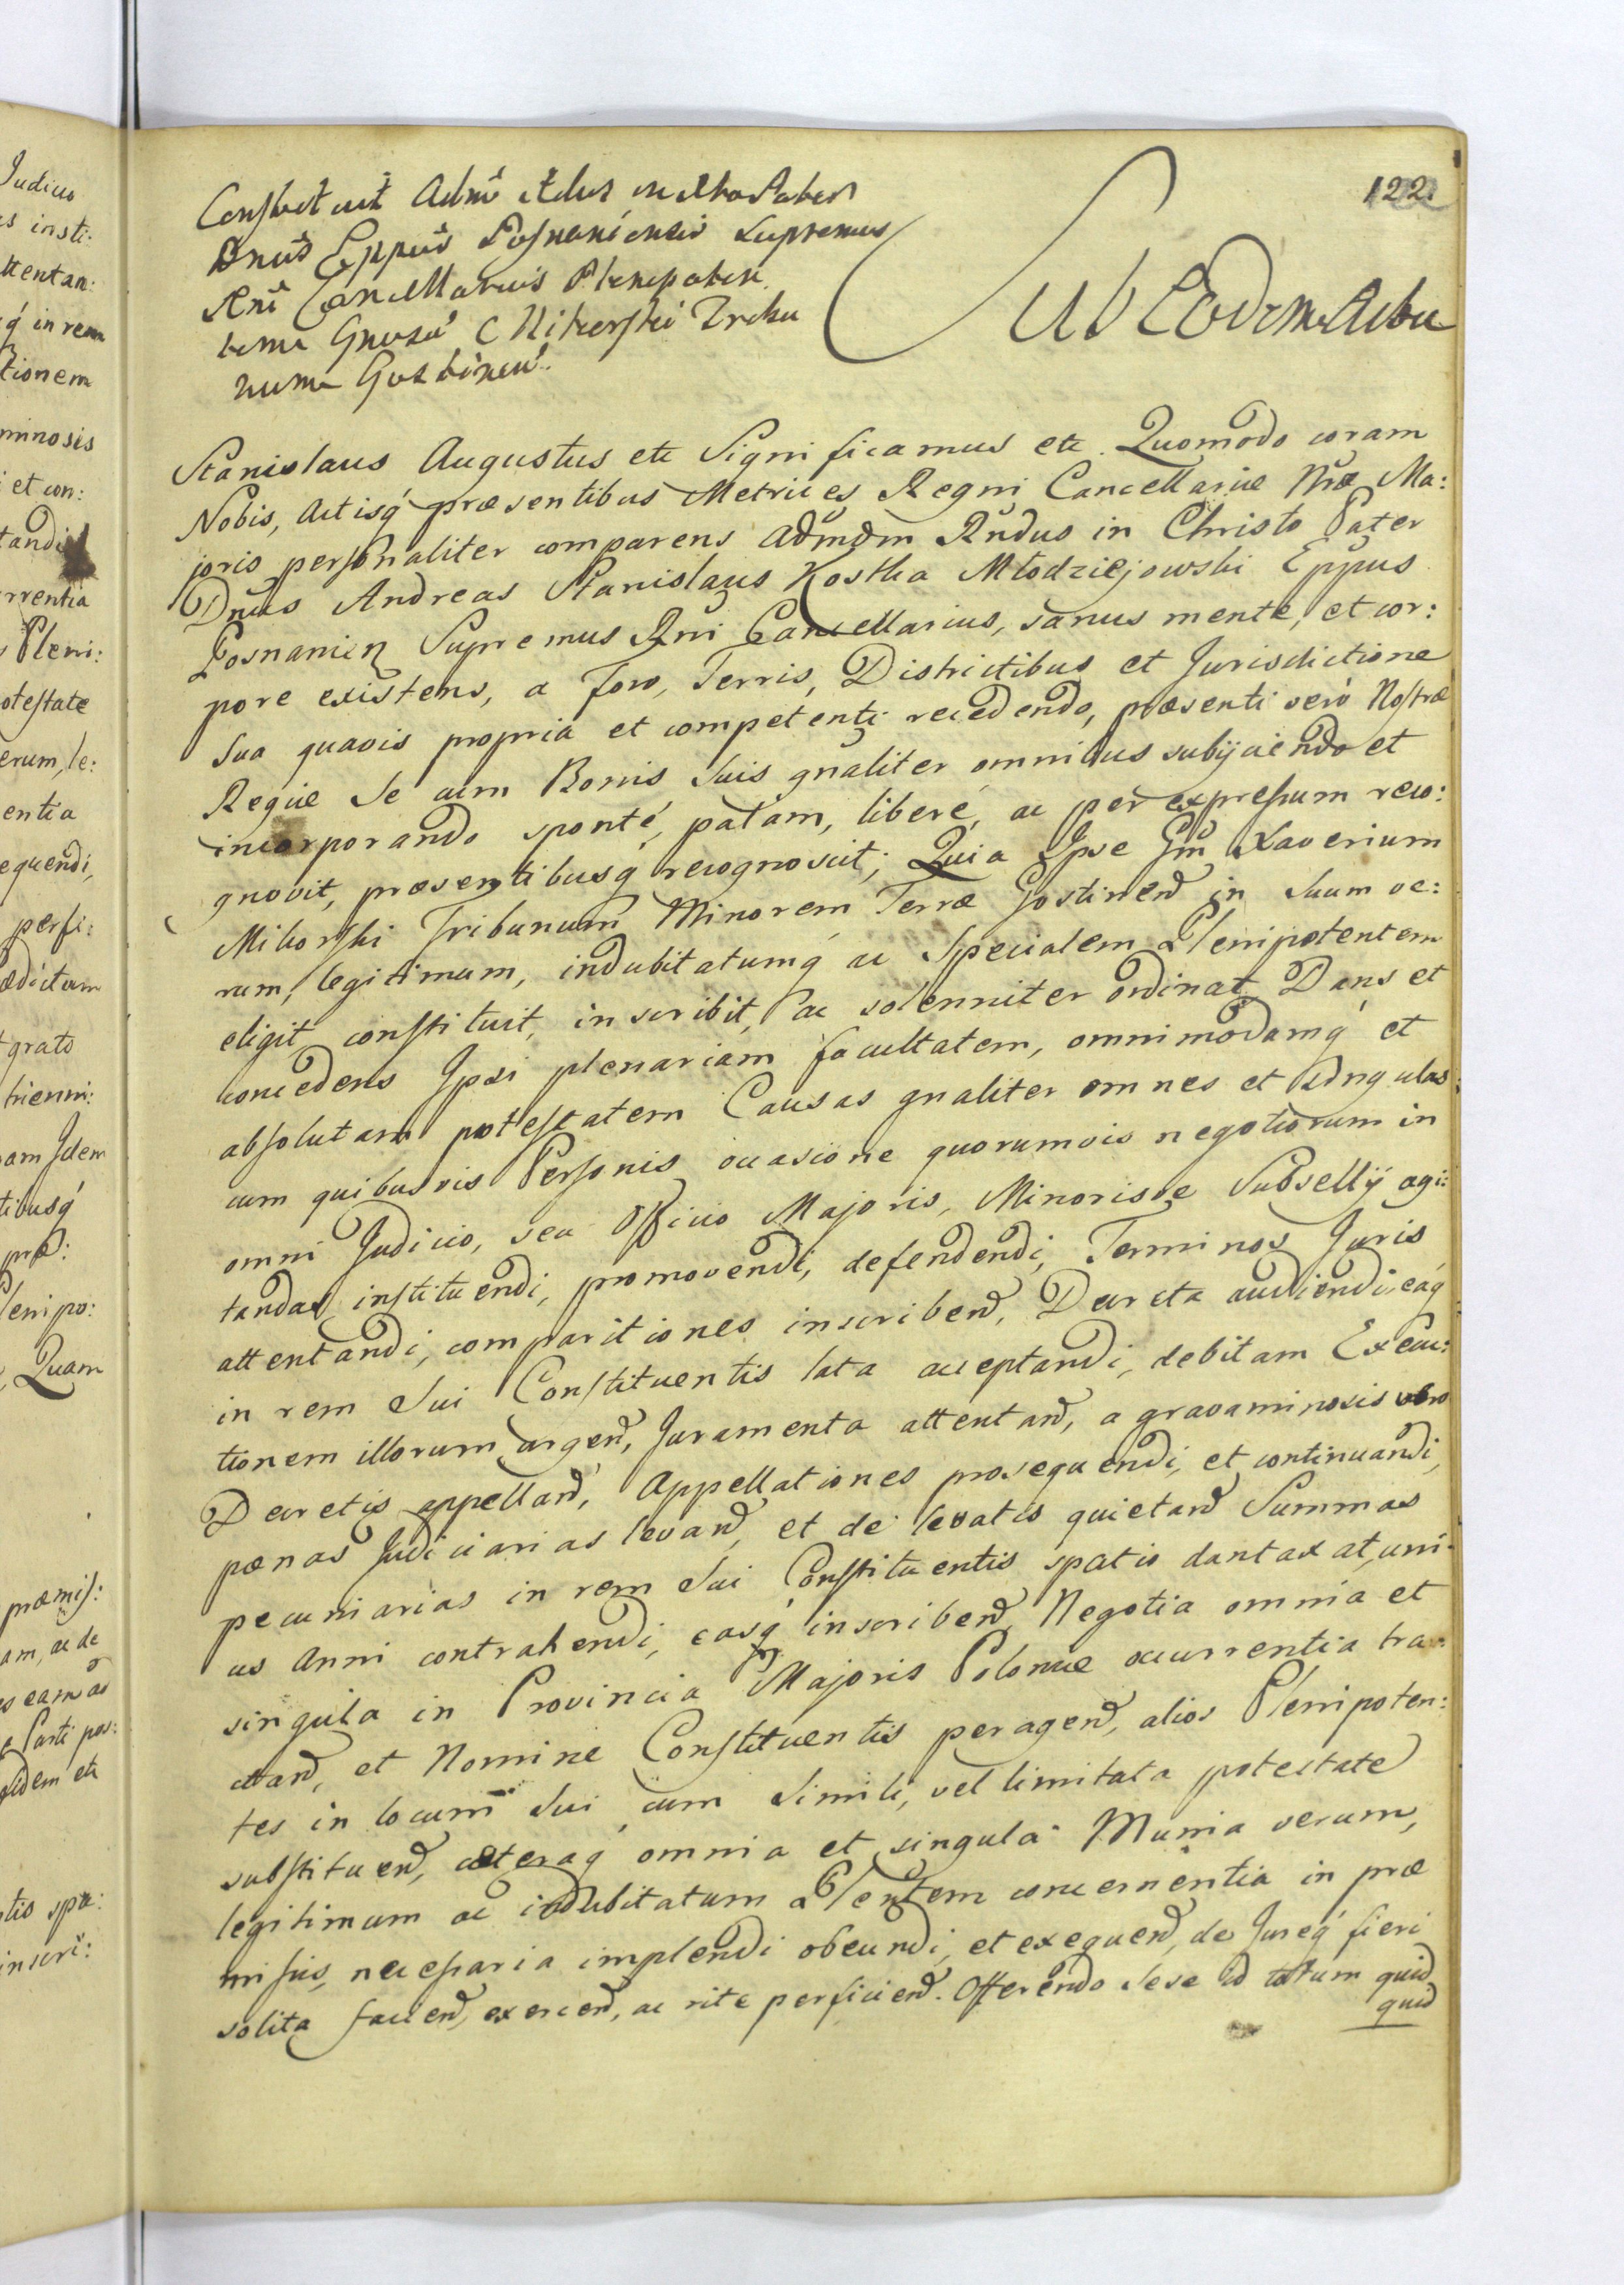 122.
Constituit Admī Rdus in Chro Pater
Dnūs Eppūs Posnaniensis Supremus
Rni Cancellarius Plenipoten
tem Gnosū Mikorski Tribu
num Gostinen̄.
Sub Eodem Actu
Stanislaus Augustus etc Significamus etc. Quomodo coram
Nobis, Actisq́ præsentibus Metrices Regni Cancellariæ Nr̄æ Ma:
joris personaliter comparens Admdm Rndus in Christo Pater
Dnūs Andreas Stanislaus Kostka Młodziejowski Eppus
Posnanien Supremus Rni Cancellarius, sanus mente, et cor:
pore existens, a foro, Terris, Districtibus et Jurisdictione
Sua quavis propria et competenti recedendo, præsenti vero Nostræ
Regiæ Se cum Bonis Suis gnāliter omnibus subijciendo et
incorporando sponté, palam, liberé, ac per expressum reco:
gnovit, præsentibusq́ recognoscit; Quia Ipse Gm̄ Xaverium
Mikorski Tribunum Minorem Terræ Gostinen̄ in Suum ve:
rum, legitimum, indubitatumq́ ac Specialem Plenipotentem
eligit, constituit, inscribit, ac solenniter ordinat, Dans et
concedens Ipsi plenariam facultatem, omnimodamq́ et
absolutam potestatem Causas gnaliter omnes et singulas
cum quibusvis Personis occasione quorumvis negotiorum in
omni Judicio, seu Officio Majoris, Minorisve Subsellij agi:
tandas instituendi, promovendi, defendendi, Terminos Juris
attentandi, comparitiones inscribend, Decreta audiendi, eaq́
in rem Sui Constituentis lata acceptandi, debitam Execu:
tionem illorum urgend, Juramenta attentand, a gravaminosis vero
Decretis appelland, Appellationes prosequendi, et continuandi,
pœnas Judiciarias levand, et de levatis quietand Summas
pecuniarias in rem Sui Constituentis spatio dantaxat, uni
us Anni contrahendi, easq́ inscribend, Negotia omnia et
singula in Provincia Majoris Poloniæ occurrentia tra:
ctand, et Nomine Constituentis peragend, alios Plenipoten:
tes in locum Sui cum Simili, vel limitata potestate
substituend, cæteraq́ omnia et singula Munia verum,
legitimum ac indubitatum Plentem concernentia in præ
missis, necessaria implendi obeundi, et exequend, de Jureq́ fieri
solita faciend, exercend, ac rite perficiend. Offerendo Sese id totum quid
quid